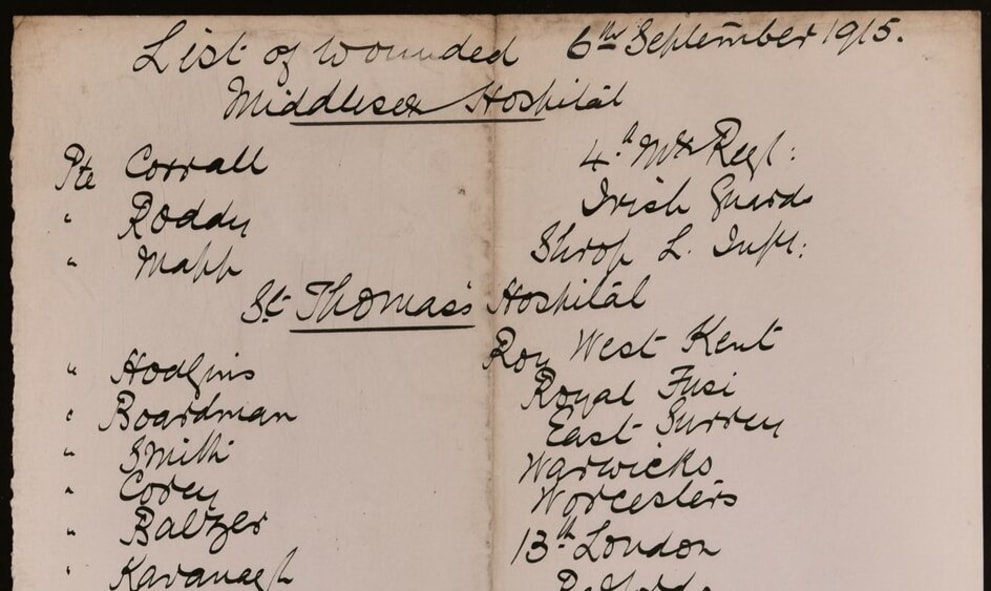 List of wounded 6th September 1915.
Middlesex Hospital
Pte Corrall 4th Mx Regt:
" Roddy Irish Guards
" Mapp Shrop L. Inft:
St Thomas's Hospital
" Hodgins Roy West Kent
" Boardman Royal Fusi
" Smith East Surrey
" Corey Warwicks
" Baltzer Worcesters
" Kavanagh 13th London
Bedfords